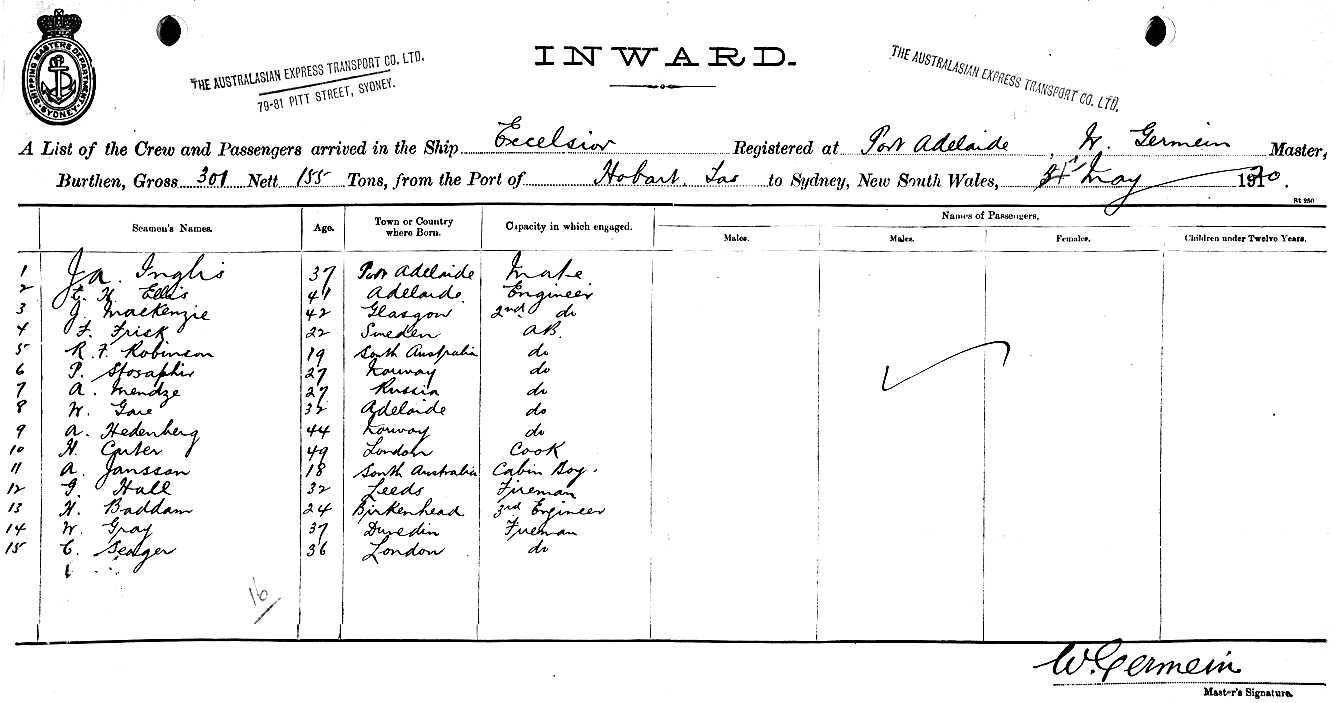 SHIPPING MASTERS DEPARTMENT SYDNEY
THE AUSTRALASIAN EXPRESS TRANSPORT CO. LTD.
79-81 PITT STREET, SYDNEY.
INWARD.
THE AUSTRALASIAN EXPRESS TRANSPORT CO. LTD.
A List of the Crew and Passengers arrived in the Ship Excelsior Registered at Port Adelaide, W. Germein Master,
Burthen, Gross 301 Nett 155 Tons, from the Port of Hobart. Tas to Sydney, New South Wales, May 1920.
St 250
Seamen's Names. Age. Town or Country where Born. Capacity in which engaged. Names of Passengers.
Males. Males. Females. Children under Twelve Years.
1 Ja. Inglis 37 Port Adelaide Mate
2 C. H. Ellis 41 Adelaide Engineer
3 J. Mackenzie 42 Glasgow 2nd do
4 F. Frisk 22 Sweden A.B.
5 R. F. Robinson 19 South Australia do
6 P. 27 Norway do
7 A. Mendze 27 Russia do
8 W. Gare 32 Adelaide do
9 A. Hedenberg 44 Norway do
10 H. Carter 49 London Cook
11 A. Jansson 18 South Australia Cabin Boy.
12 G. Hall 32 Leeds Fireman
13 H. Baddam 24 Birkenhead 3rd Engineer
14 W. Gray 37 Dunedin Fireman
15 C. Seager 36 London do
16
W. Germein
Master's Signature.